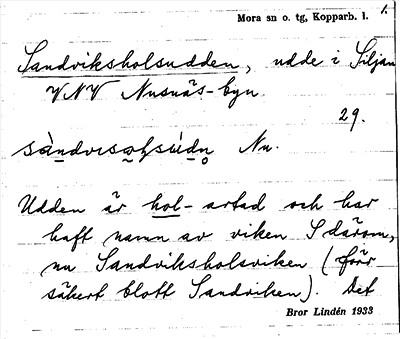 Mora sn o. tg, Kopparb. l. 1.
Sandviksholsudden, udde i Siljan
VNV Nusnäs-byn.
29.
Nu.
Udden är hol-artad och har
haft namn av viken S därom,
nu Sandviksholsviken (förr
säkert blott Sandviken). Det
Bror Lindén 1933